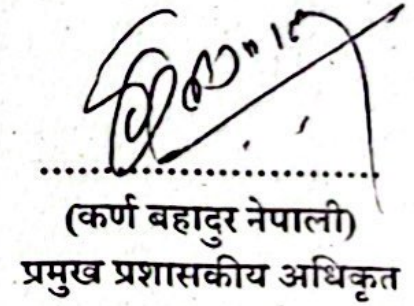 ....................................
(कर्ण बहादुर नेपाली)
प्रमुख प्रशासकीय अधिकृत